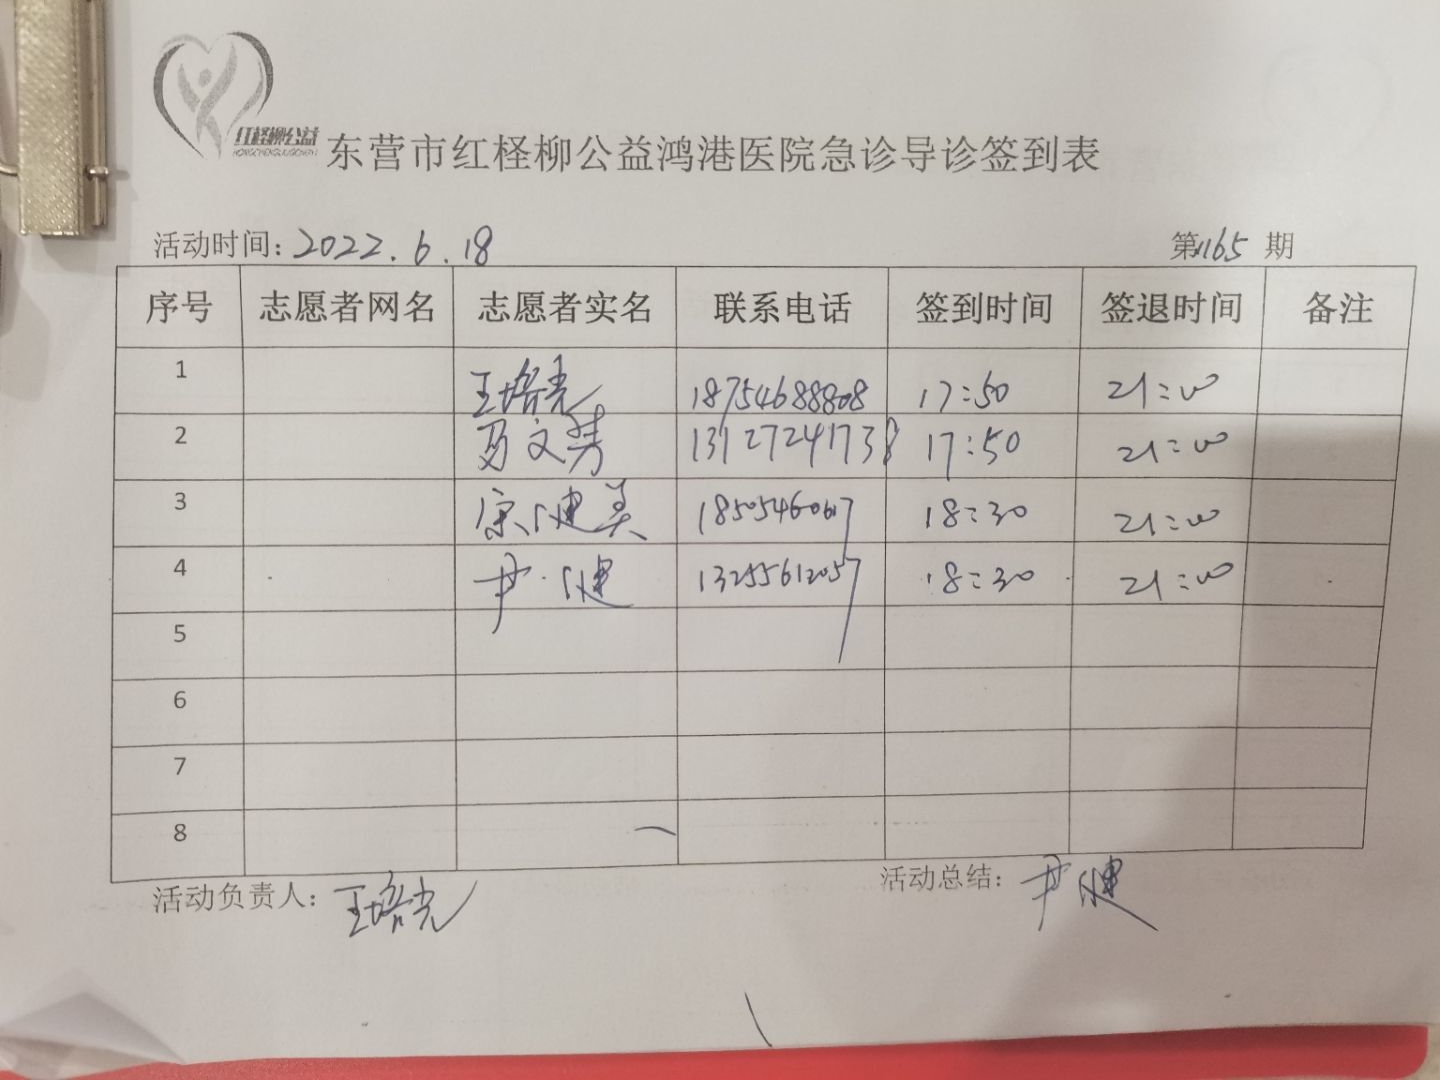 红柽柳公益
东营市红柽柳公益鸿港医院急诊导诊签到表
活动时间: 2022.6.18 第1165期
序号 志愿者网名 志愿者实名 联系电话 签到时间 签退时间 备注
1 王培光 18754688808 17:50 21:00
2 马文芳 13127241738 17:50 21:00
3 宗健美 18505460617 18:30 21:00
4 尹健 13255612057 18:30 21:00
5
6
7
8
活动负责人: 王培光 活动总结: 尹健